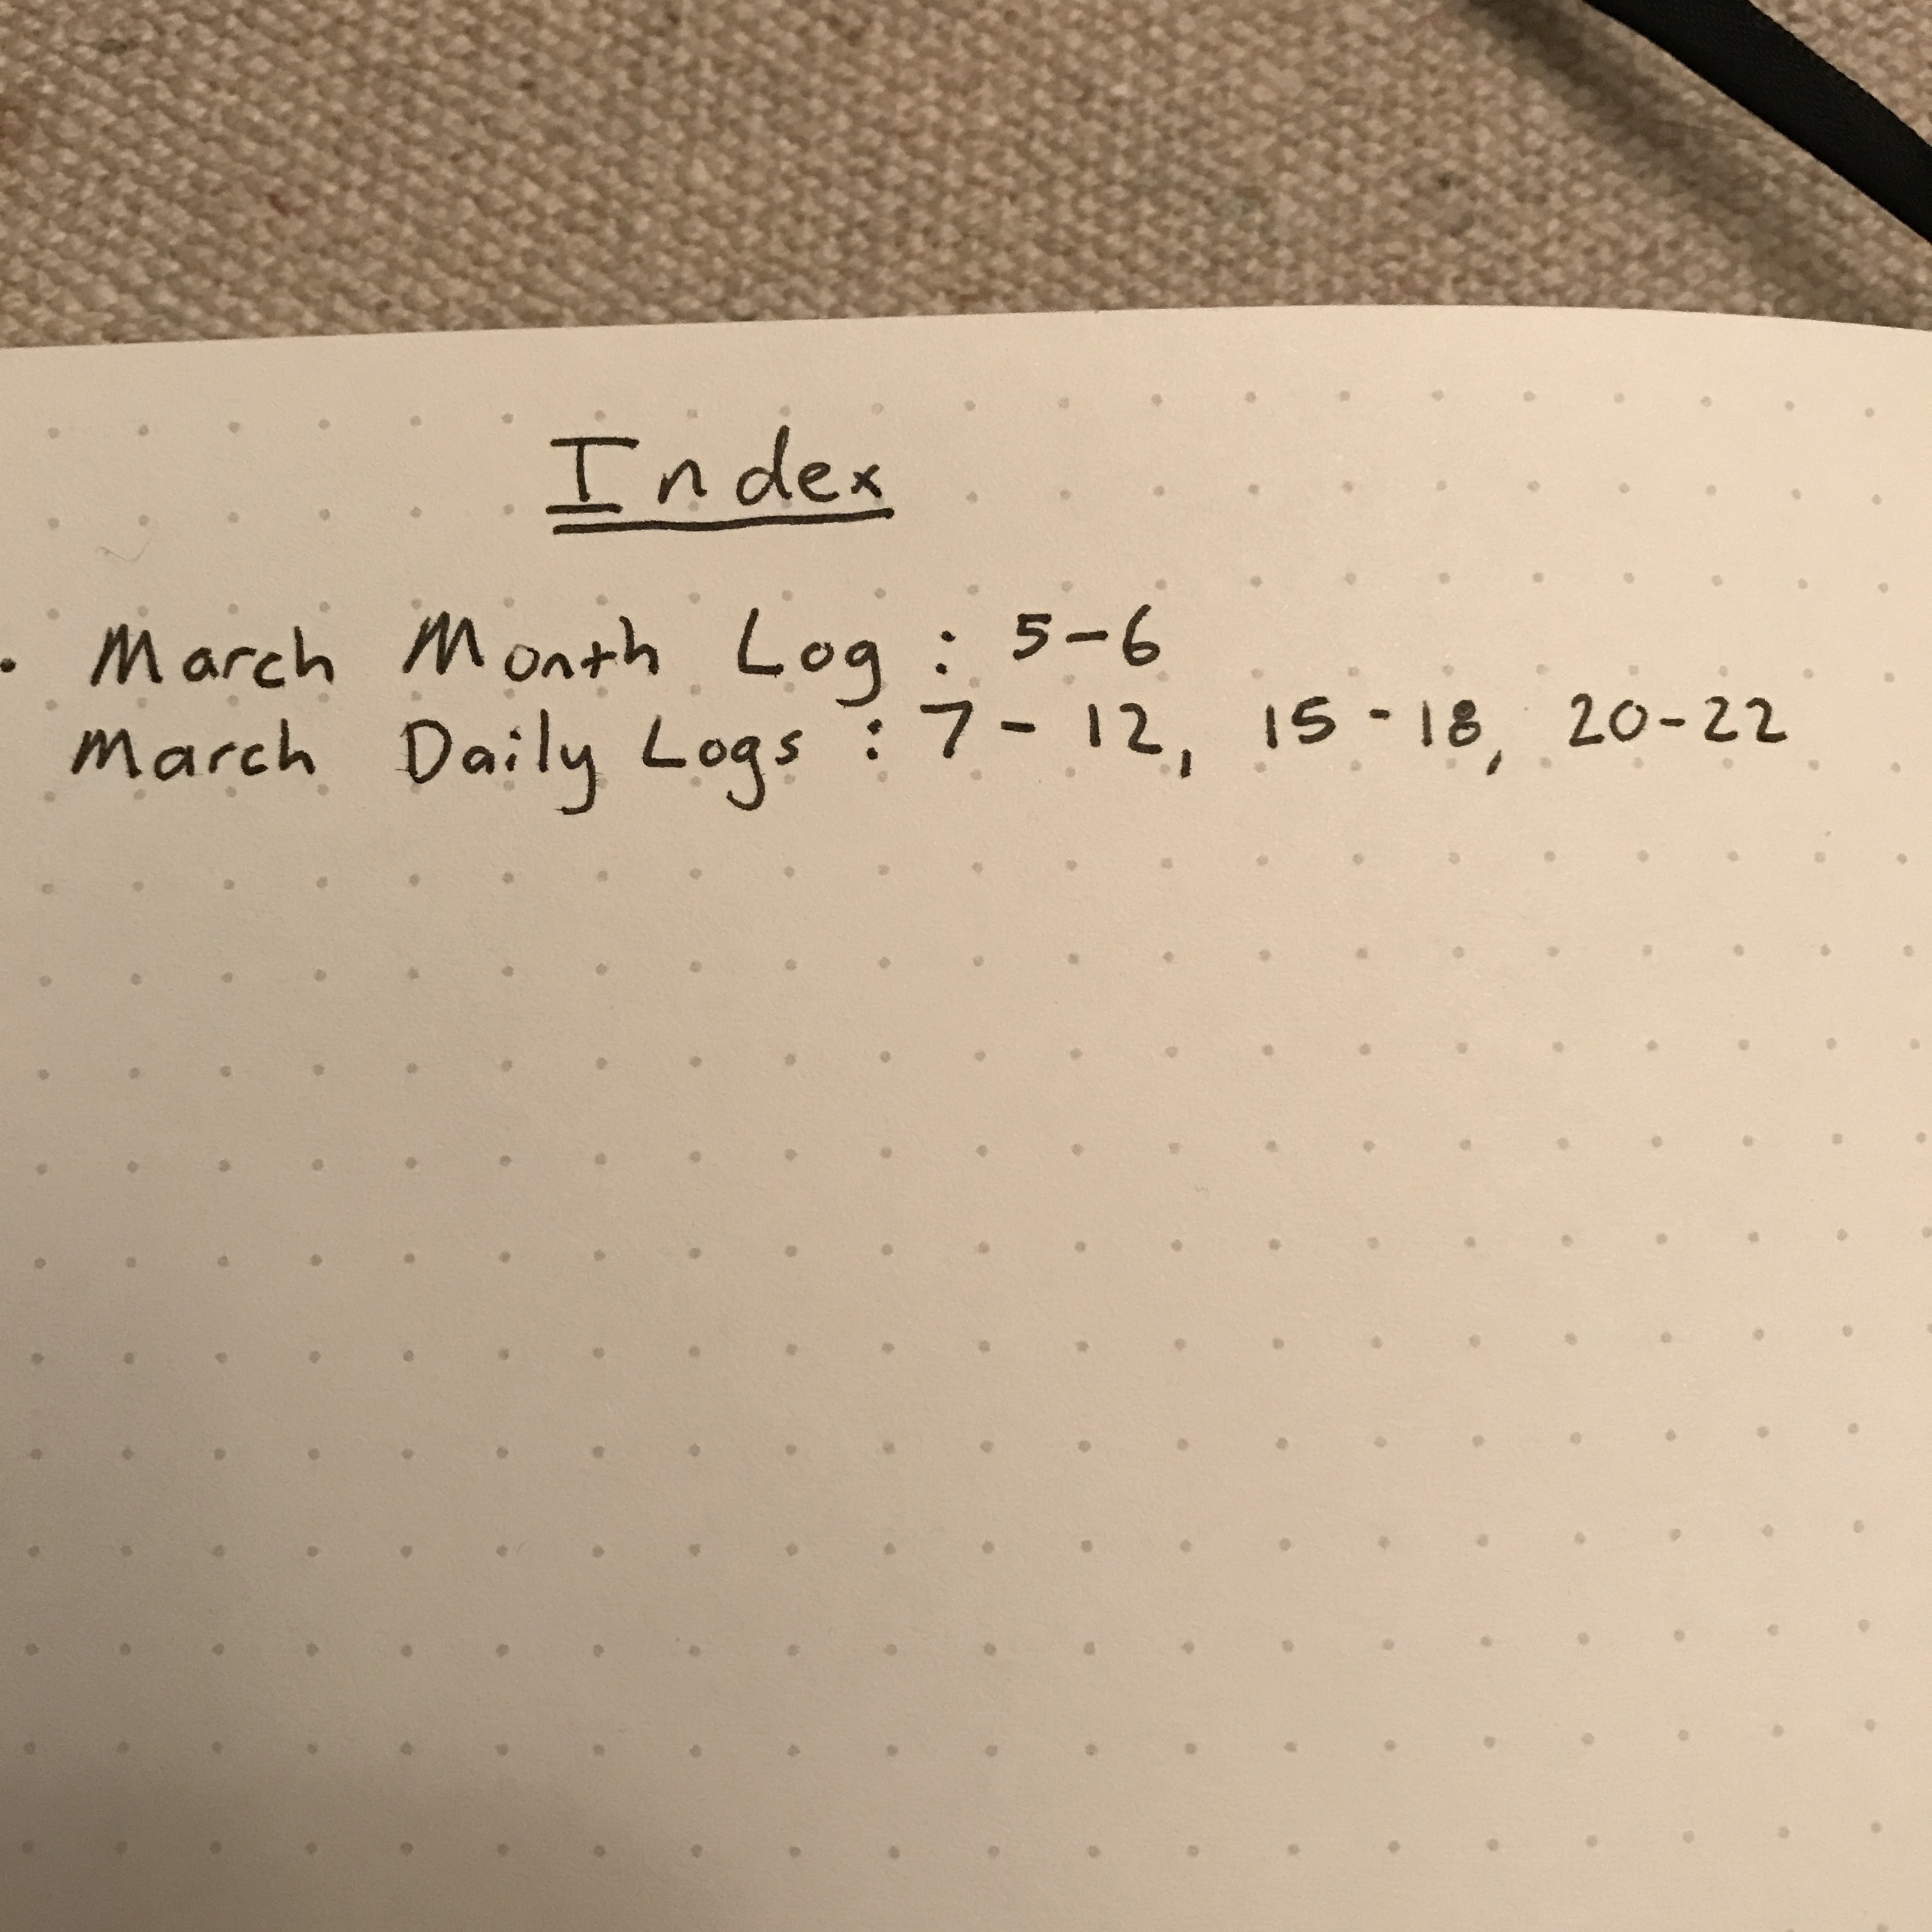 Index
· March Month Log : 5-6
March Daily Logs : 7 - 12, 15 - 18, 20-22